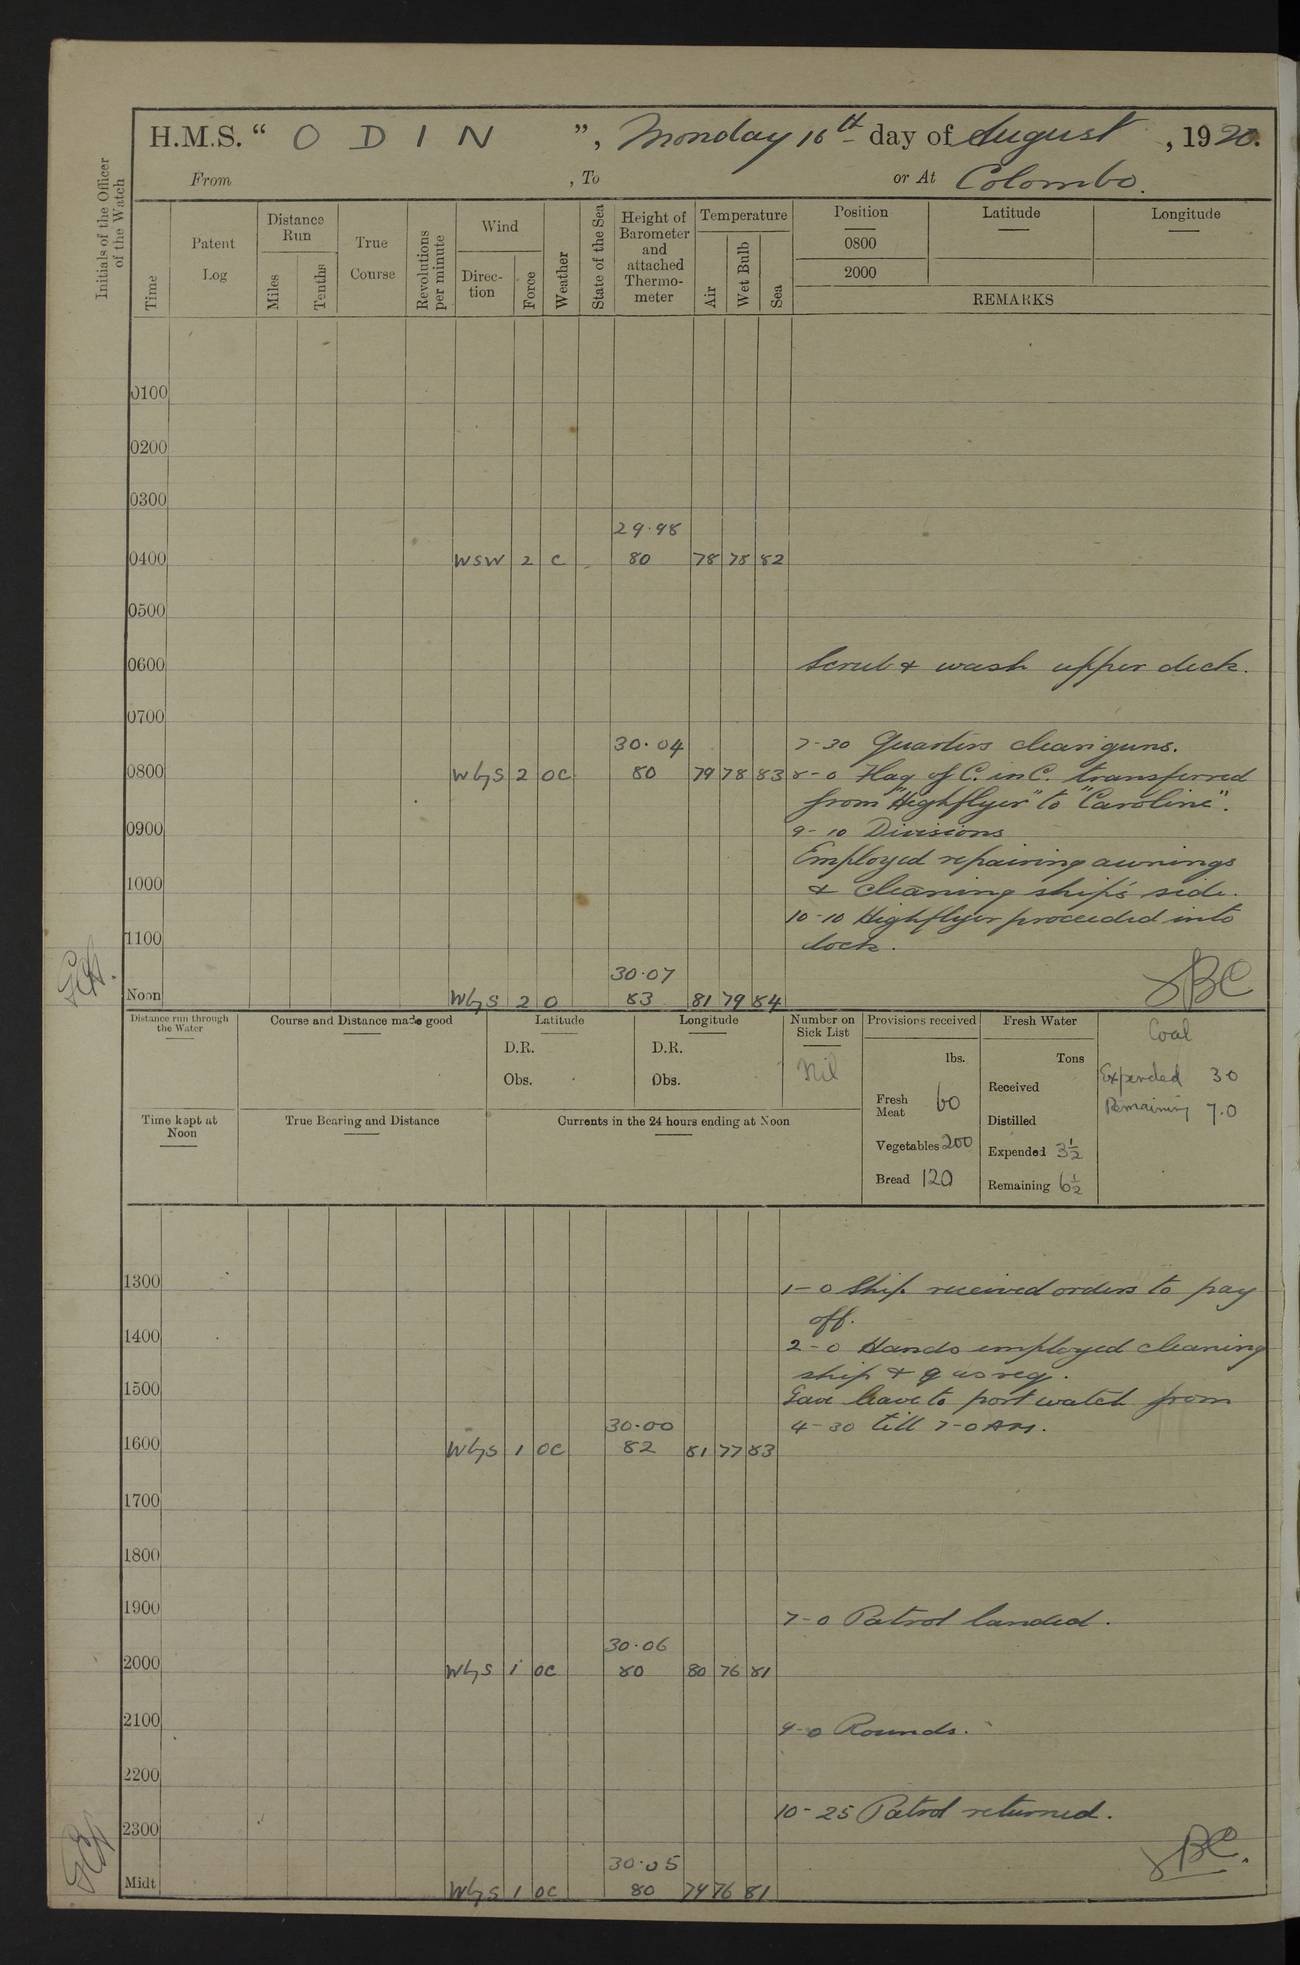 H.M.S. “ O D I N ”, Monday 16th day of August, 1920.
From , To or At Colombo.
Initials of the Officer of the Watch
Time
Patent Log
Distance Run
Miles
Tenths
True Course
Revolutions per minute
Wind
Direction
Force
Weather
State of the Sea
Height of Barometer and attached Thermometer
Temperature
Air
Wet Bulb
Sea
Position Latitude Longitude
0800
2000
REMARKS
0100
0200
0300
29.98
0400 WSW 2 C - 80 78 78 82
0500
0600 Scrub & wash upper deck.
0700
30.04 7-30 Quarters clean guns.
0800 WbyS 2 OC 80 79 78 83 8-0 Flag of C. in C. transferred
from "Highflyer" to "Caroline".
0900 9-10 Divisions
Employed repairing awnings
1000 & cleaning ship's side.
10-10 Highflyer proceeded into
1100 dock.
30.07
Noon WbyS 2 O 83 81 79 84
Distance run through the Water
Course and Distance made good
Latitude
D.R.
Obs.
Longitude
D.R.
Obs.
Number on Sick List
Nil
Provisions received
lbs.
Fresh Meat 60
Vegetables 200
Bread 120
Fresh Water
Tons
Received
Distilled
Expended 3½
Remaining 6½
Coal
Expended 30
Remaining 7.0
Time kept at Noon
True Bearing and Distance
Currents in the 24 hours ending at Noon
1300 1-0 Ship received orders to pay
off.
1400 2-0 Hands employed cleaning
ship & as req.
1500 Gave leave to port watch from
30.00 4-30 till 7-0 AM.
1600 WbyS 1 OC 82 81 77 83
1700
1800
1900 7-0 Patrol landed.
30.06
2000 WbyS 1 OC 80 80 76 81
2100 9-0 Rounds.
2200
10-25 Patrol returned.
2300
30.05
Midt WbyS 1 OC 80 79 76 81